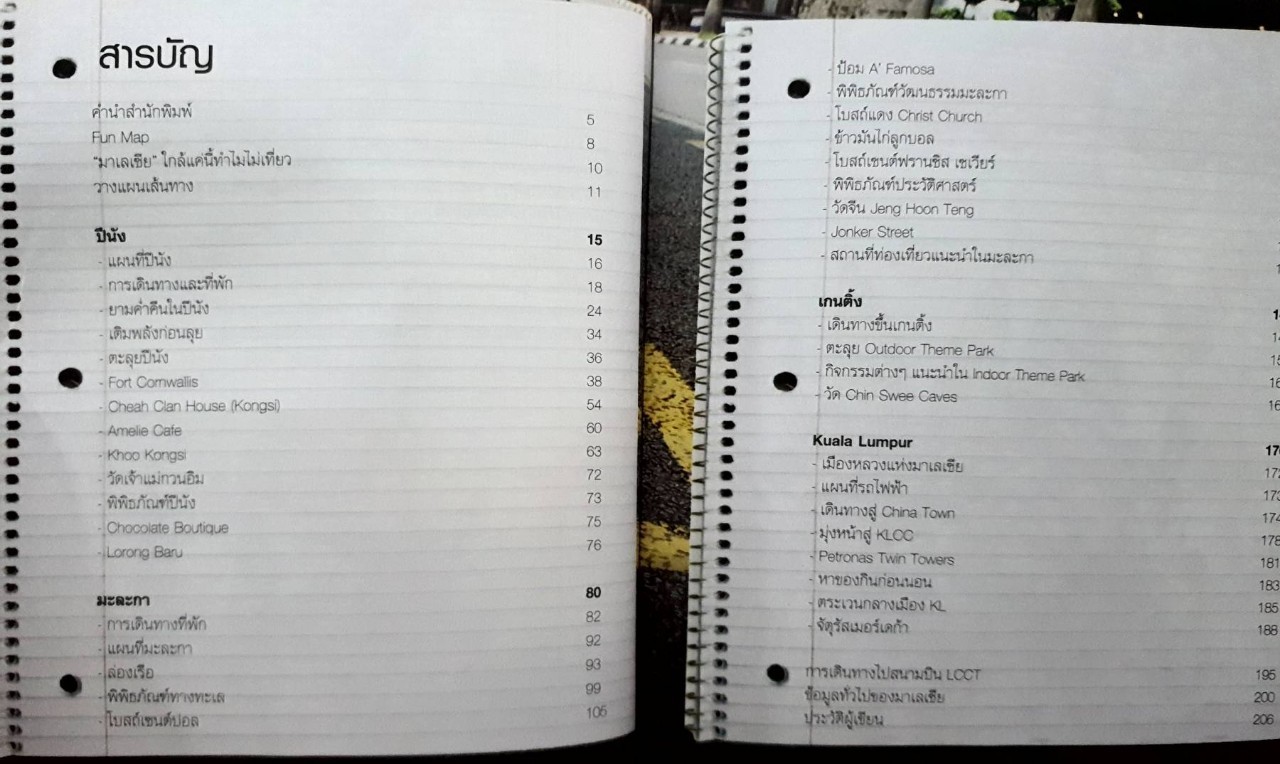 สารบัญ
คำนำสำนักพิมพ์ 5
Fun Map 8
"มาเลเซีย" ใกล้แค่นี้ทำไมไม่เที่ยว 10
วางแผนเส้นทาง 11
ปีนัง 15
- แผนที่ปีนัง 16
- การเดินทางและที่พัก 18
- ยามค่ำคืนในปีนัง 24
- เติมพลังก่อนลุย 34
- ตะลุยปีนัง 36
- Fort Cornwallis 38
- Cheah Clan House (Kongsi) 54
- Amelie Cafe 60
- Khoo Kongsi 63
- วัดเจ้าแม่กวนอิม 72
- พิพิธภัณฑ์ปีนัง 73
- Chocolate Boutique 75
- Lorong Baru 76
มะละกา 80
- การเดินทางที่พัก 82
- แผนที่มะละกา 92
- ล่องเรือ 93
- พิพิธภัณฑ์ทางทะเล 99
- โบสถ์เซนต์ปอล 105
- ป้อม A' Famosa
- พิพิธภัณฑ์วัฒนธรรมมะละกา
- โบสถ์แดง Christ Church
- ข้าวมันไก่ลูกบอล
- โบสถ์เซนต์ฟรานซิส เซเวียร์
- พิพิธภัณฑ์ประวัติศาสตร์
- วัดจีน Jeng Hoon Teng
- Jonker Street
- สถานที่ท่องเที่ยวแนะนำในมะละกา
เกนติ้ง
- เดินทางขึ้นเกนติ้ง
- ตะลุย Outdoor Theme Park
- กิจกรรมต่างๆ แนะนำใน Indoor Theme Park
- วัด Chin Swee Caves
Kuala Lumpur
- เมืองหลวงแห่งมาเลเซีย
- แผนที่รถไฟฟ้า 173
- เดินทางสู่ China Town 174
- มุ่งหน้าสู่ KLCC 178
- Petronas Twin Towers 181
- หาของกินก่อนนอน 183
- ตระเวนกลางเมือง KL 185
- จัตุรัสเมอร์เดก้า 188
การเดินทางไปสนามบิน LCCT 195
ข้อมูลทั่วไปของมาเลเซีย 200
ประวัติผู้เขียน 206